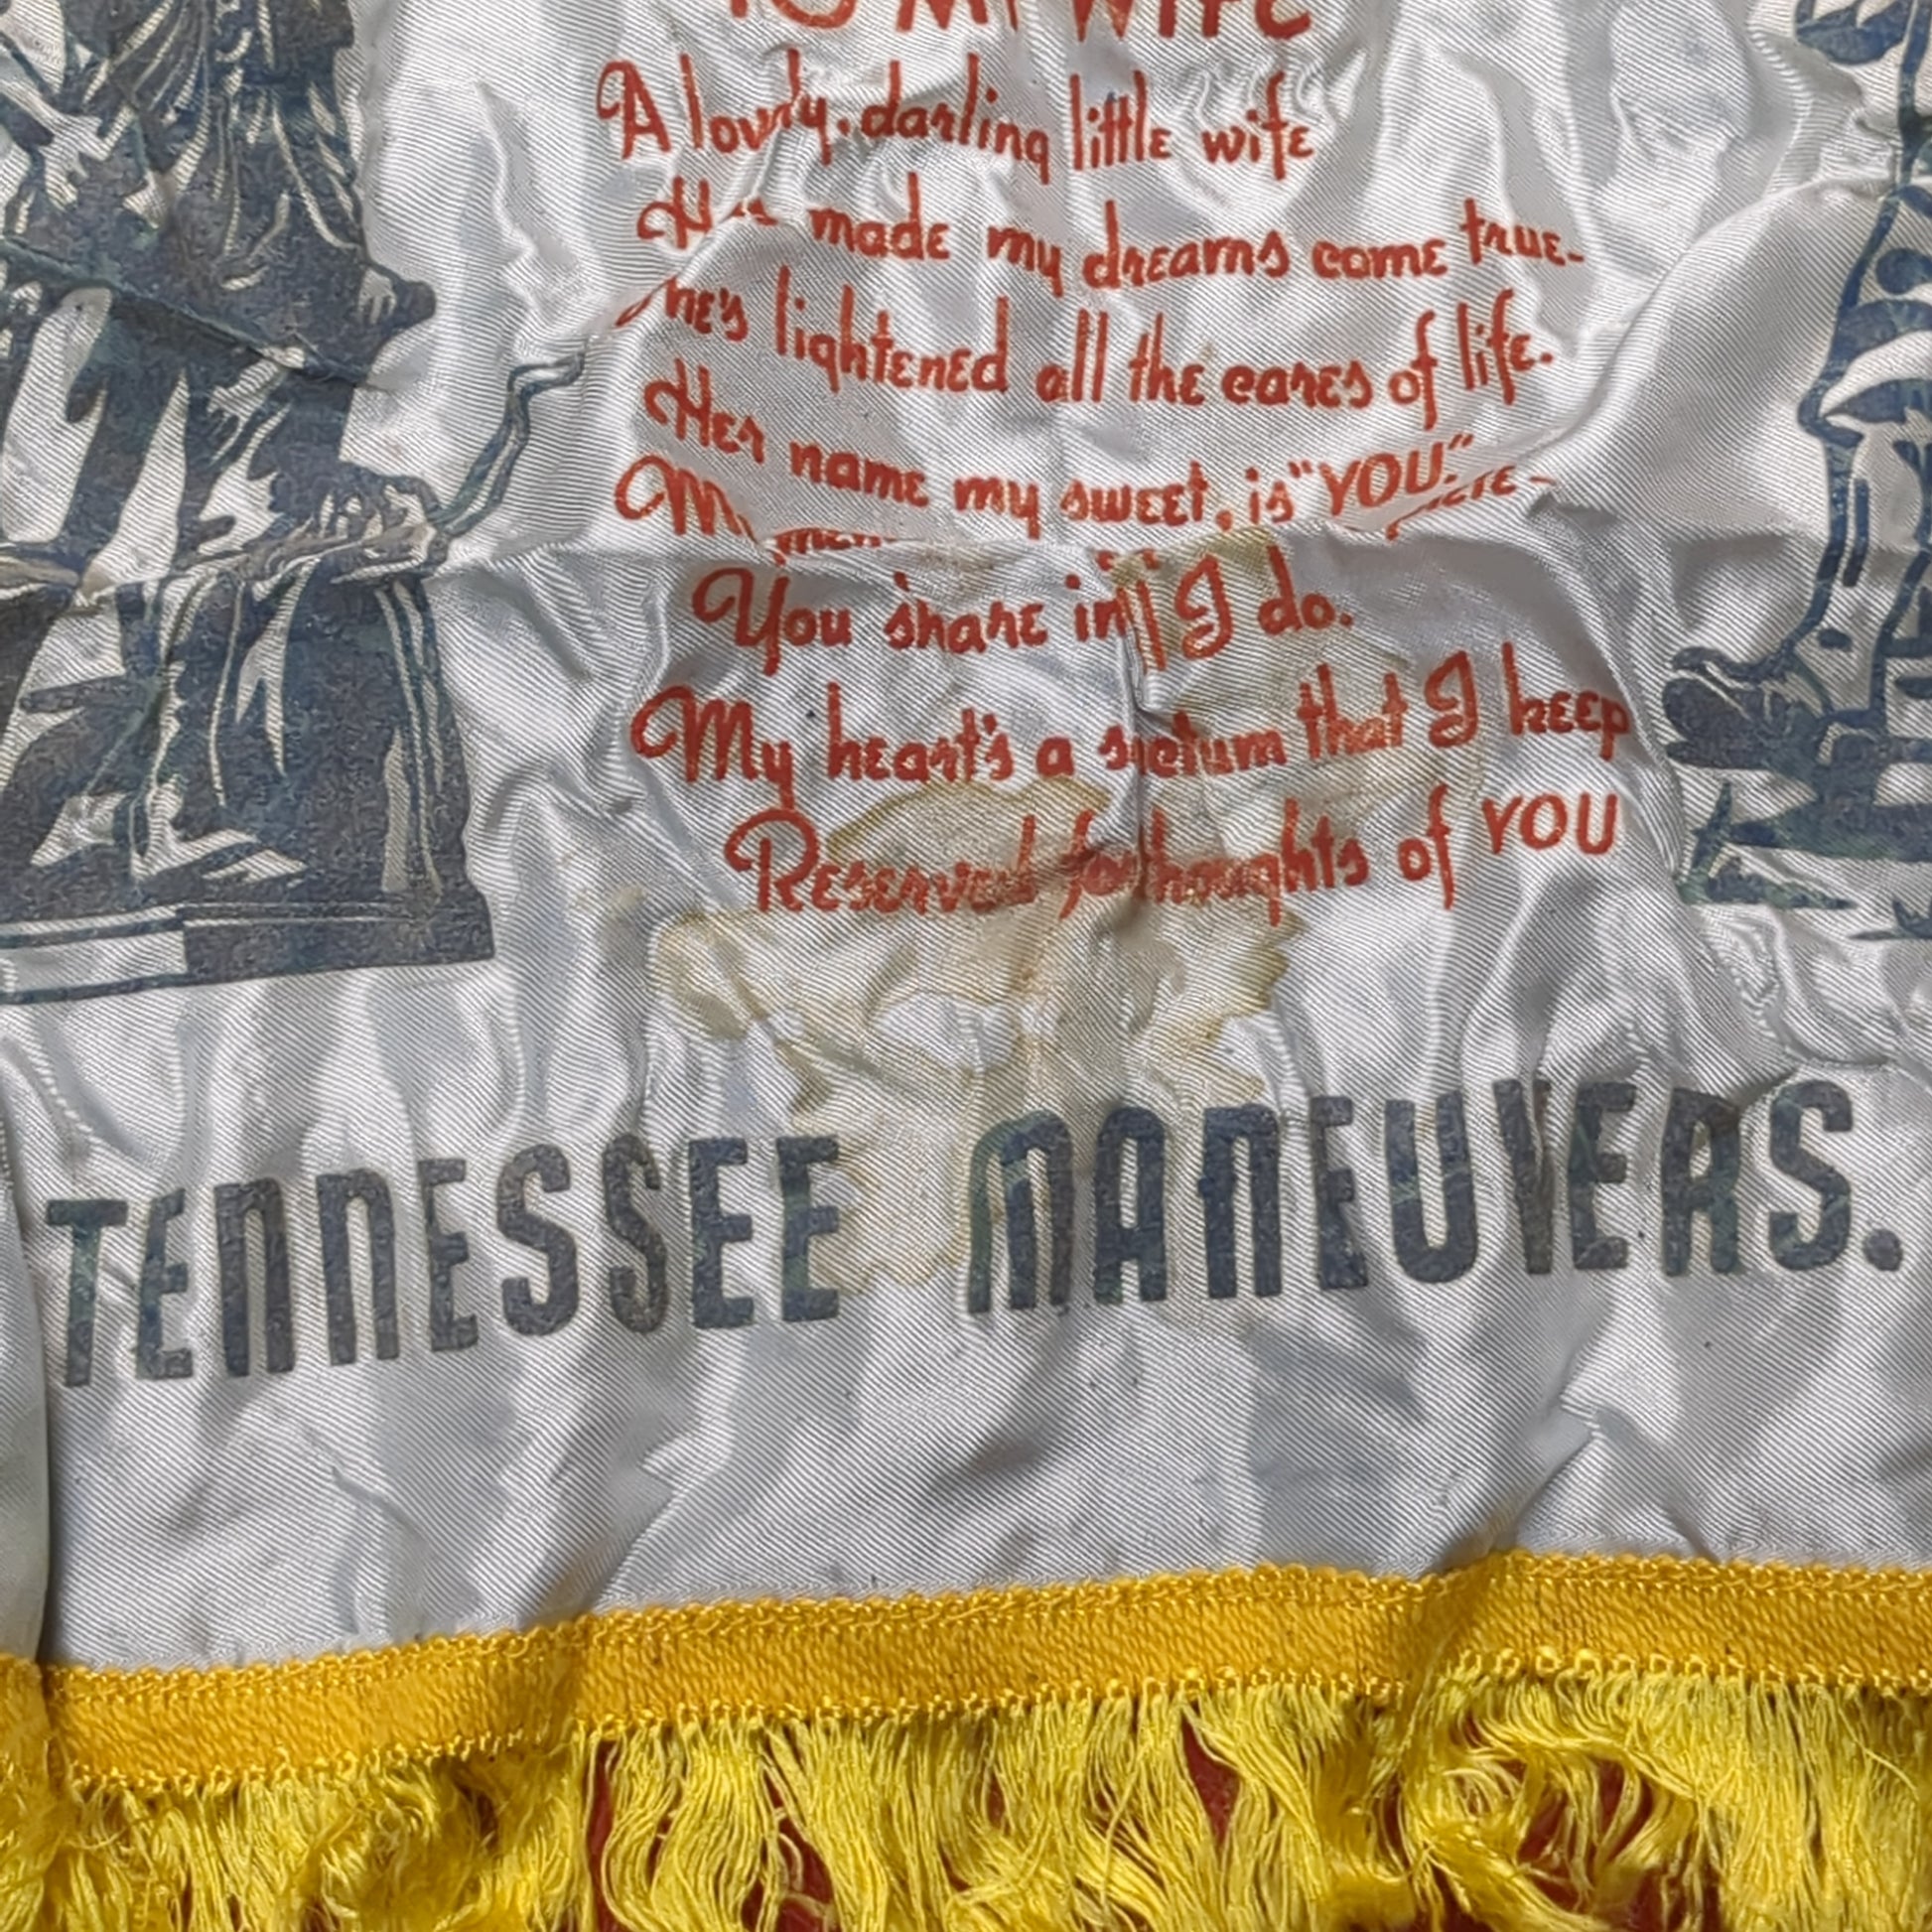 TO MY WIFE
A lovely, darling little wife
made my dreams come true.
lightened all the cares of life.
Her name my sweet, is "YOU."
You share in I do.
My heart's a that I keep
Reserved for thoughts of YOU
TENNESSEE MANEUVERS.